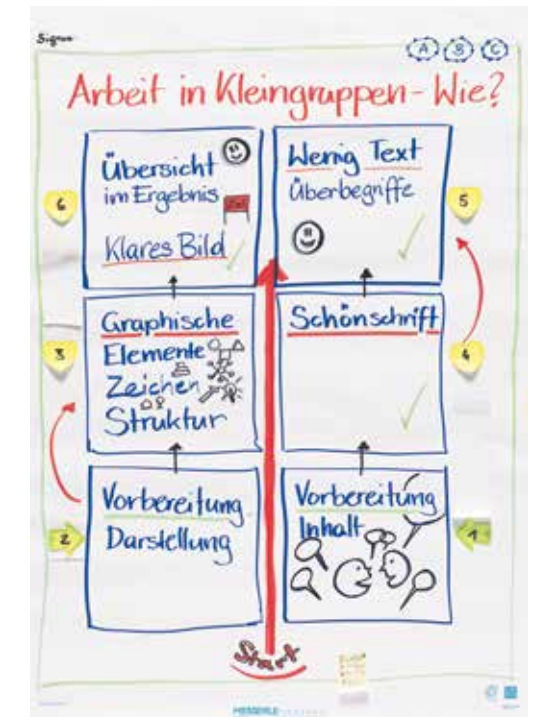 Signun
A B C
Arbeit in Kleingruppen - Wie?
6
Übersicht
im Ergebnis
Ziel
Klares Bild
Wenig Text
Überbegriffe
5
3
Graphische
Elemente
Zeichen
Struktur
Schönschrift
4
2
Vorbereitung
Darstellung
Vorbereitung
Inhalt
1
Start